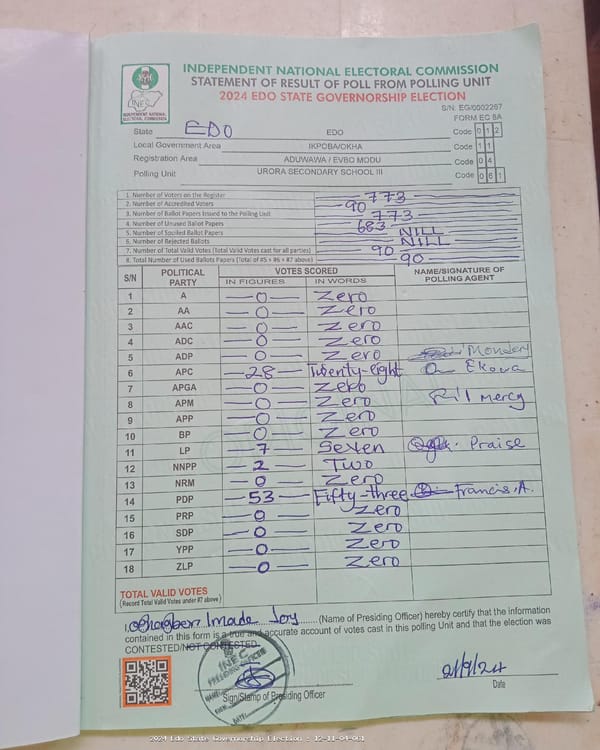 INDEPENDENT NATIONAL ELECTORAL COMMISSION
STATEMENT OF RESULT OF POLL FROM POLLING UNIT
2024 EDO STATE GOVERNORSHIP ELECTION
INDEPENDENT NATIONAL ELECTORAL COMMISSION
S/N: EG/0002267
FORM EC 8A
State EDO EDO Code 0 1 2
Local Government Area IKPOBA/OKHA Code 1 1
Registration Area ADUWAWA / EVBO MODU Code 0 4
Polling Unit URORA SECONDARY SCHOOL III Code 0 6 1
1. Number of Voters on the Register 773
2. Number of Accredited Voters 90
3. Number of Ballot Papers Issued to the Polling Unit 773
4. Number of Unused Ballot Papers 683
5. Number of Spoiled Ballot Papers NILL
6. Number of Rejected Ballots NILL
7. Number of Total Valid Votes (Total Valid Votes cast for all parties) 90
8. Total Number of Used Ballots Papers (Total of #5 + #6 + #7 above) 90
S/N POLITICAL PARTY VOTES SCORED NAME/SIGNATURE OF POLLING AGENT
IN FIGURES IN WORDS
1 A 0 Zero
2 AA 0 Zero
3 AAC 0 Zero
4 ADC 0 Zero
5 ADP 0 Zero Monday
6 APC 28 Twenty-eight Ekowa
7 APGA 0 Zero
8 APM 0 Zero Mercy
9 APP 0 Zero
10 BP 0 Zero
11 LP 7 Seven Praise
12 NNPP 2 Two
13 NRM 0 Zero
14 PDP 53 Fifty-three Francis. A.
15 PRP 0 Zero
16 SDP 0 Zero
17 YPP 0 Zero
18 ZLP 0 Zero
TOTAL VALID VOTES
(Record Total Valid Votes under #7 above)
I, Imade Joy (Name of Presiding Officer) hereby certify that the information
contained in this form is a true and accurate account of votes cast in this polling Unit and that the election was
CONTESTED/NOT CONTESTED.
INEC
PRESIDING OFFICER
NAME:
SIGN:
DATE:
21/9/24
Sign/Stamp of Presiding Officer Date
2024 Edo State Governorship Election : 12-11-04-061